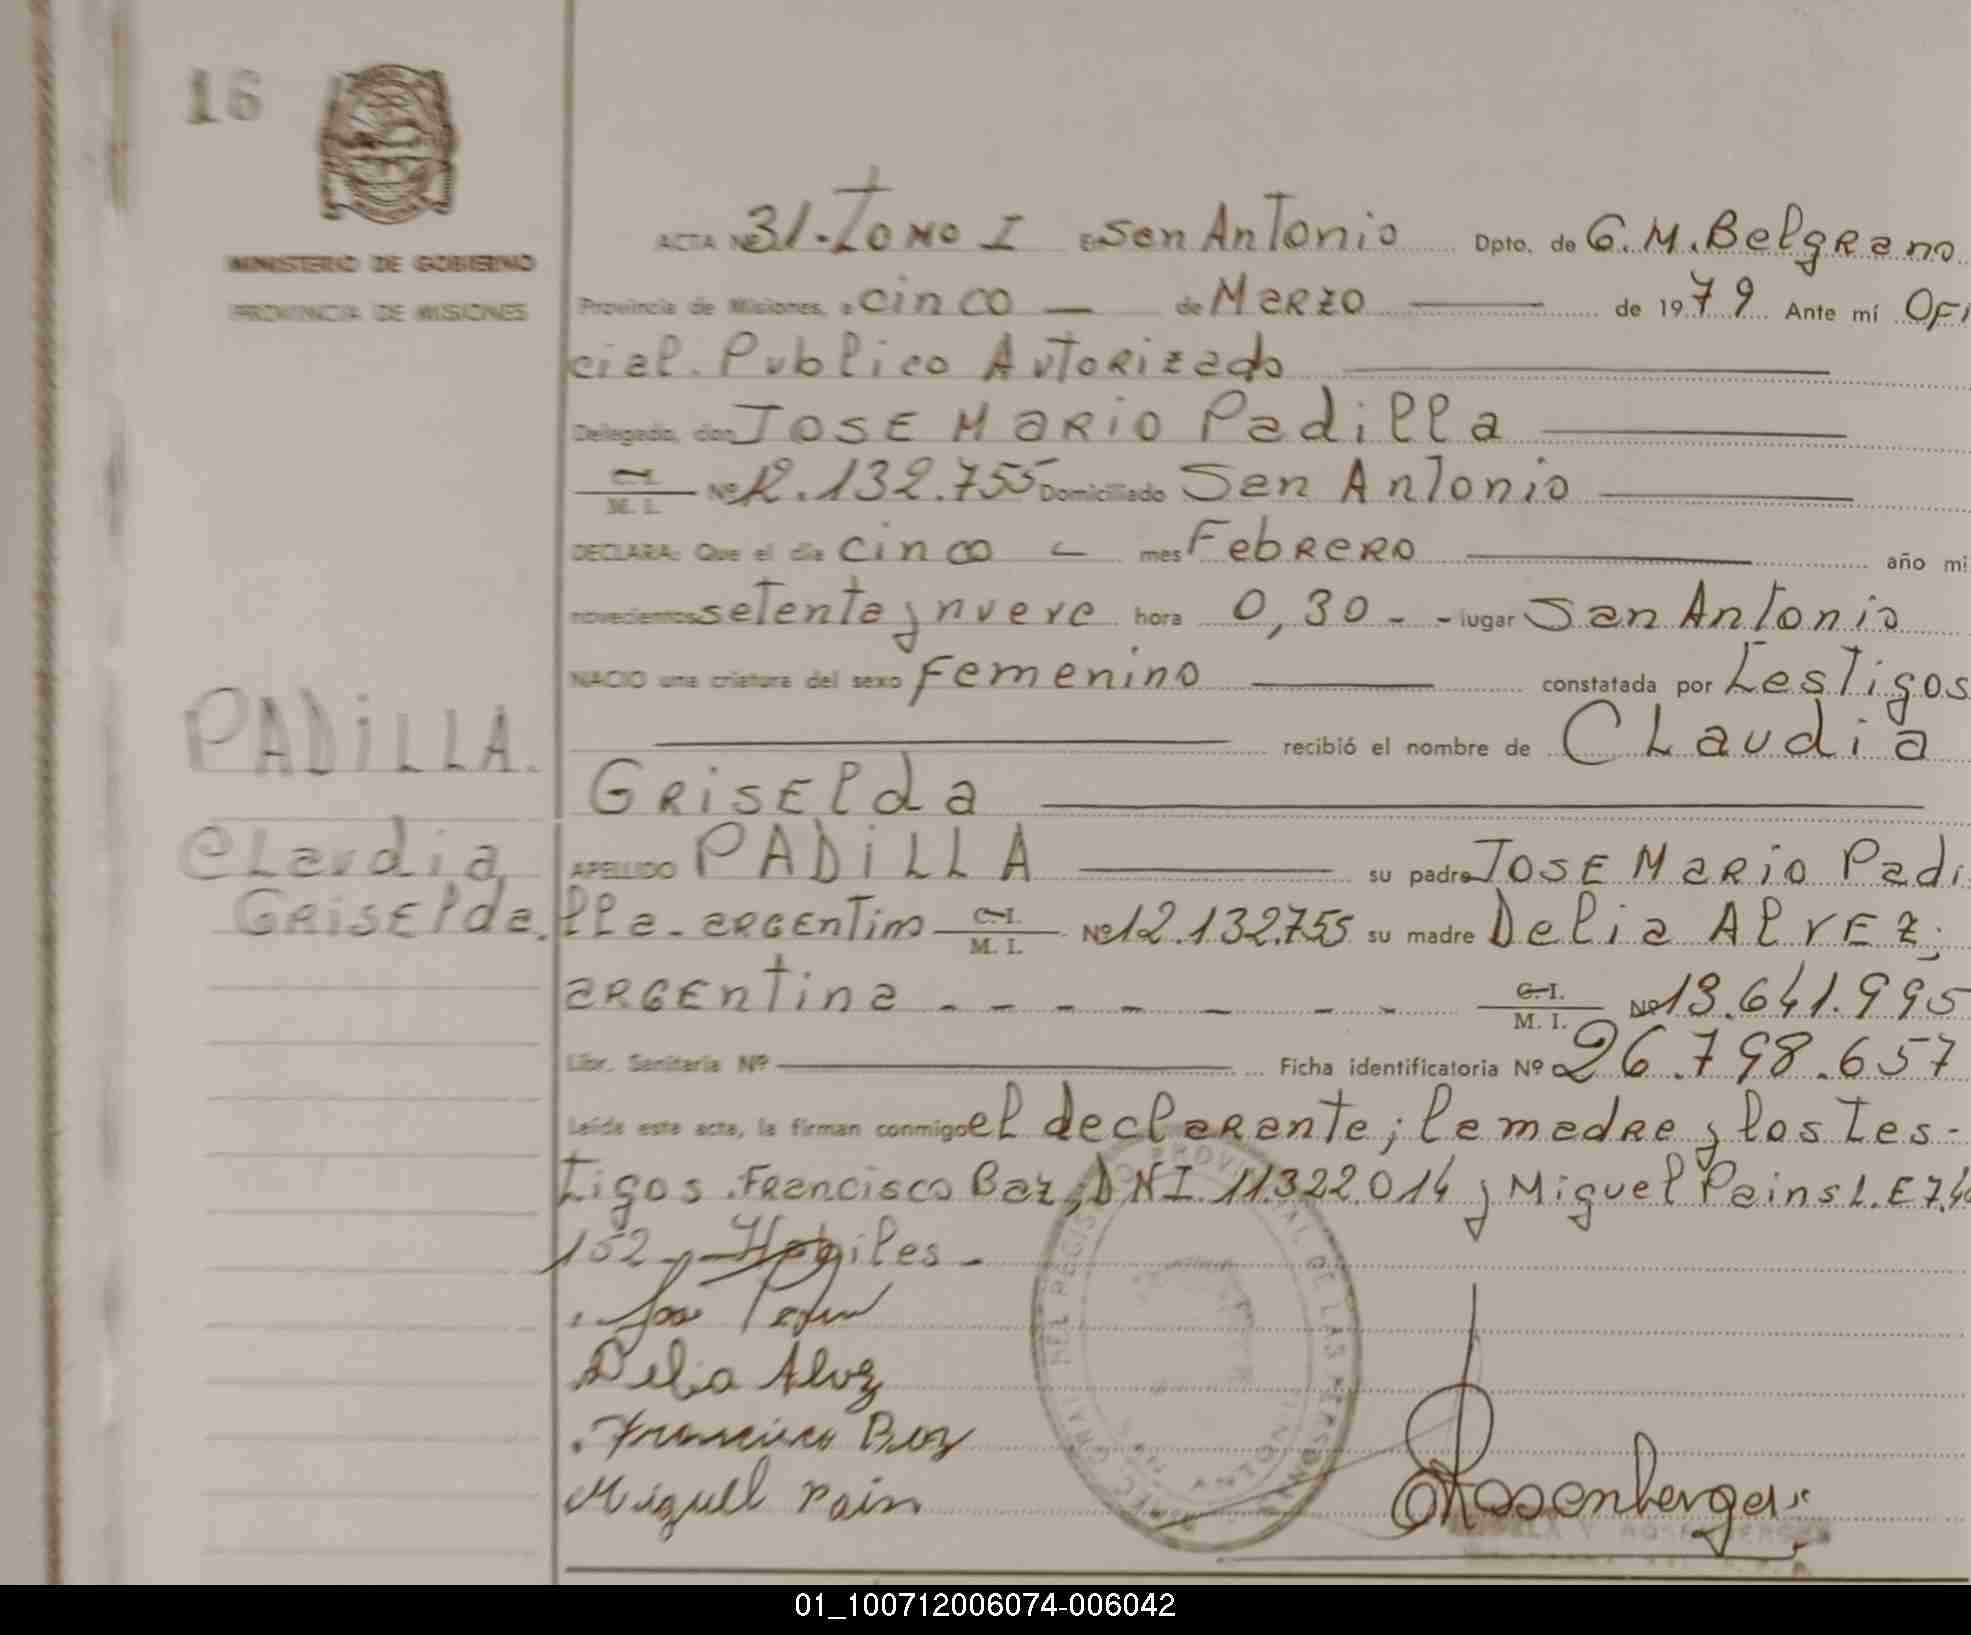 16
MINISTERIO DE GOBIERNO
PROVINCIA DE MISIONES
ACTA Nº 31. Tomo I En San Antonio Dpto. de G. M. Belgrano
Provincia de Misiones, a cinco — de Marzo — de 1979 Ante mí Ofi
cial. Publico Autorizado
Delegado, don JOSE MARIO Padilla
C.I. / M. I. Nº 12.132.755 Domiciliado San Antonio
DECLARA: Que el día cinco — mes Febrero — año mi
novecientos setenta y nueve hora 0,30 - - lugar San Antonio
NACIO una criatura del sexo Femenino — constatada por Testigos
recibió el nombre de Claudia
Griselda
PADILLA.
Claudia
Griselda.
APELLIDO PADILLA — su padre JOSE MARIO Padi
lla - argentino C.I. / M. I. Nº 12.132.755 su madre Delia Alvez;
argentina - - - - - - - C.I. / M. I. Nº 13.641.995
Libr. Sanitaria Nº — Ficha identificatoria Nº 26.798.657
Leída esta acta, la firman conmigo el declarante; la madre y los Tes-
Tigos. Francisco Baz, DNI 11.322.014 y Miguel Pains L.E 7.4
152 - Habiles -
Delia Alvez
Francisco Boz
Miguel Pain
Rosenberger
01_100712006074-006042